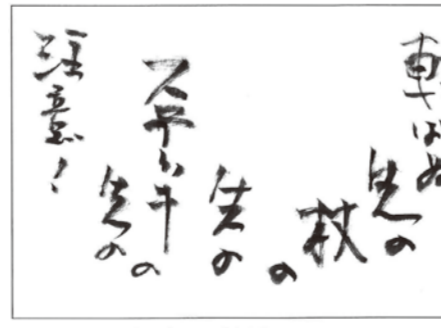 転ばぬ
先の
杖
の
先の
先の
の
注意!